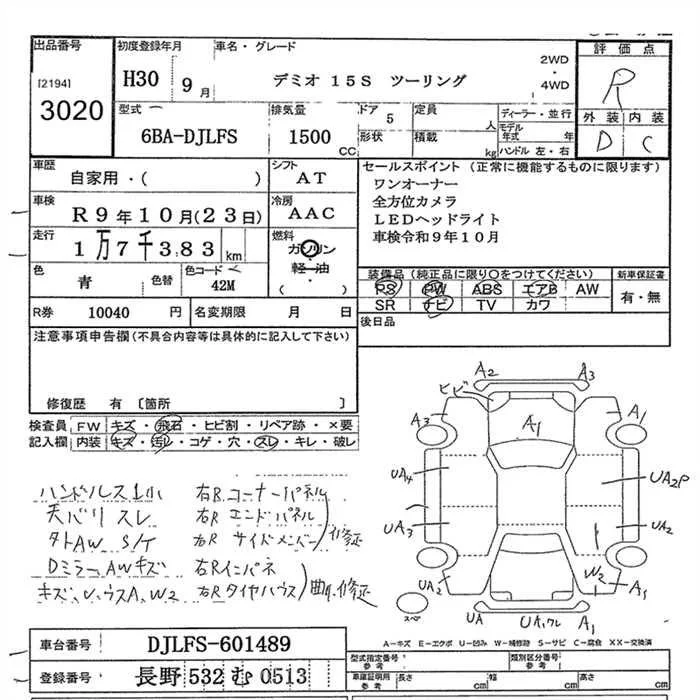 出品番号
[2194]
3020
初度登録年月
H30 9月
車名・グレード
デミオ 15S ツーリング
2WD
・
4WD
評価点
R
外装 内装
D C
型式
6BA-DJLFS
排気量
1500
CC
ドア 5
形状
定員 人
積載 kg
ディーラー・並行
モデル年式 年
ハンドル 左・右
車歴
自家用・( )
シフト
AT
車検
R9年10月(23日)
冷房
AAC
走行
1万7千383
km
燃料
ガソリン
軽・油
・
( )
色
青
色替
色コード
42M
R券 10040 円
名変期限 月 日
セールスポイント (正常に機能するものに限ります)
ワンオーナー
全方位カメラ
LEDヘッドライト
車検令和9年10月
装備品(純正品に限り○をつけてください)
新車保証書
PS PW ABS エアB AW
有・無
SR ナビ TV カワ
後日品
注意事項申告欄(不具合内容等は具体的に記入して下さい)
修復歴 有 〔箇所 〕
検査員
記入欄
FW キズ・飛石・ヒビ割・リペア跡・×要
内装 キズ・汚レ・コゲ・穴・スレ・キレ・破レ
天バリ スレ
Dミラー、AWキズ
右R コーナーパネル
右R エンドパネル
右R サイドメンバー
修正
右R インパネ
右R タイヤハウス
曲、修正
A2
A3
ヒビ
A3
A1
A1
UA4
UA2P
UA3
UA2
UA2
W2
A1
スペア
UA
UA1ワレ
A1
A-キズ E-エクボ U-凹み W-補修跡 S-サビ C-腐食 XX-交換済
車台番号
DJLFS-601489
登録番号
長野 532 む 0513
型式指定番号
参考
類別区分番号
参考
車庫証明用
参考
長さ cm
幅 cm
高さ cm